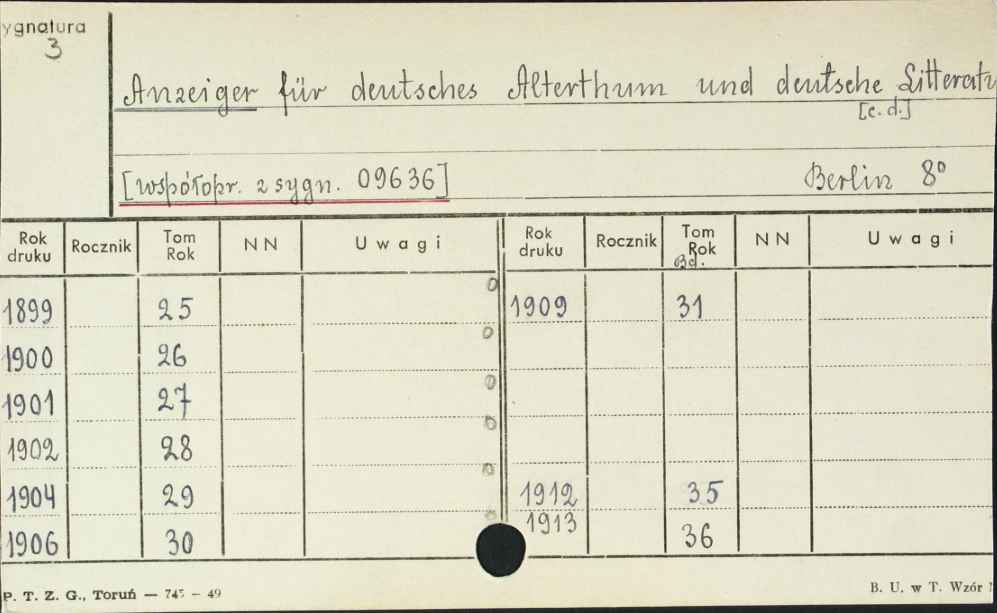 ygnatura
3
Anzeiger für deutsches Alterthum und deutsche Litteratu
[c.d.]
[współopr. z sygn. 09636]
Berlin 8°
Rok druku Rocznik Tom Rok NN Uwagi Rok druku Rocznik Tom Rok Bd. NN Uwagi
1899 25 1909 31
1900 26
1901 27
1902 28
1904 29 1912 35
1906 30 1913 36
P. T. Z. G., Toruń — 745 — 49
B. U. w T. Wzór